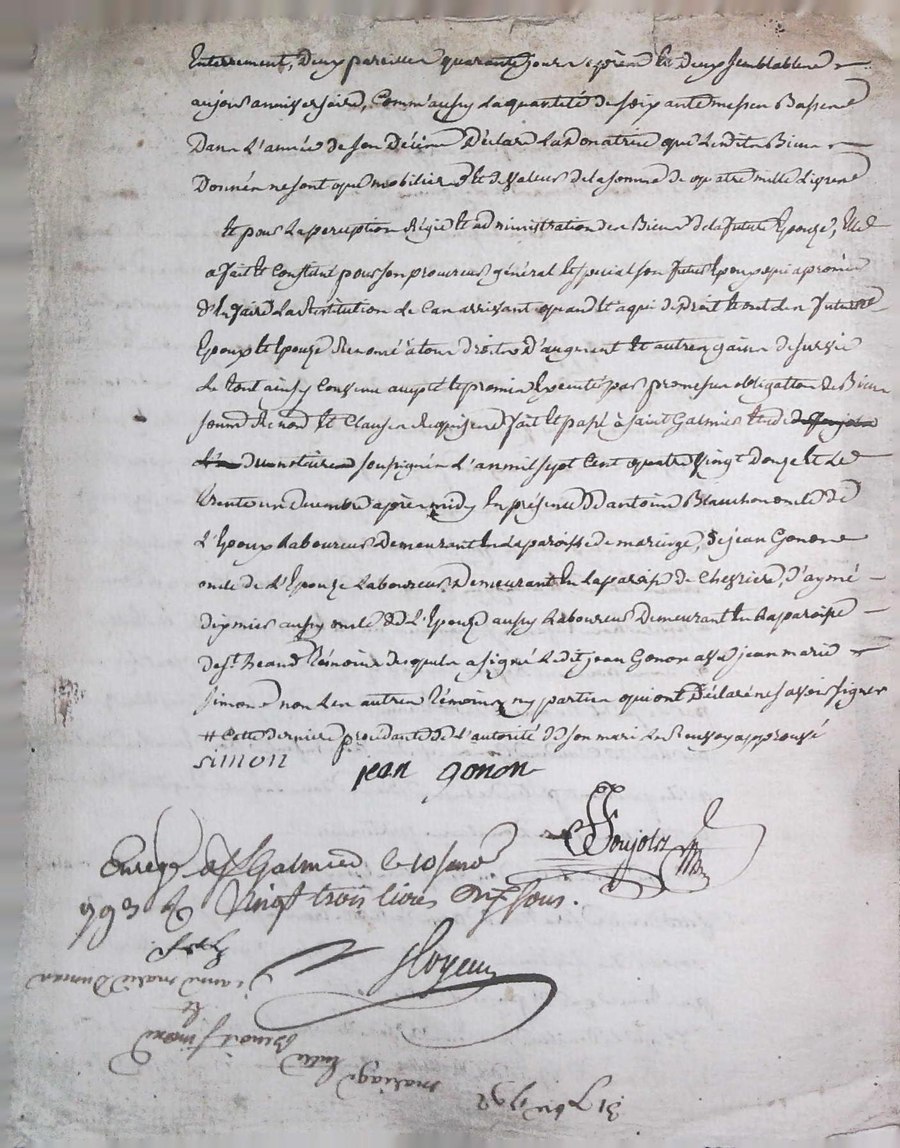 Enterrement, deux pareilles quarante jours après et deux semblables
aujour anniversaire, comm'aussy la quantité de soixante messes Basses
Dans l'année de son décès Déclare la donatrice que lesdits Biens
Donnés ne sont que mobiliers et de valeur de la somme de quatre mille livres
et pour la perception Régie et administration des Biens de la future Epouze, elle
a fait et constitué pour son procureur général et special son futur Epoux qui a promis
d'En faire la Restitution le cas arrivant quand et a qui de Droit et ont les futurs
Epoux et Epouze Renoncé à tous droits d'augment et autres gains de survie
le tout ainsy convenu accepté et promis Executé par promesses obligation de Biens
soumis Renon et clauses Requises fait et passé à saint Galmier etude
du notaire soussigné l'an mil sept cent quatre vingt douze et le
trente un decembre après midy En présence d'antoine Blanchon oncle de
l'Epoux laboureur demeurant En la paroisse de maringe, de jean Gonon
oncle de l'Epouze laboureur demeurant En la paroisse de Chevriere, d'aymé
dixmier aussy oncle de l'Epouze aussy laboureur Demeurant En la paroisse
de st heand témoins desquels a signé ledit jean Gonon avec jean marie
simon non les autres témoins ny parties qui ont Déclaré ne savoir signer
# cette derniere procedante de l'autorité de son mari le Renvoy approuvé
simon jean gonon
Soujols
Enregé a st Galmier le 10 janv
793 R Vingt trois livres dix sous.
31 Xbre 1792
mariage Entre
Benoit simon
Et
jeanne marie